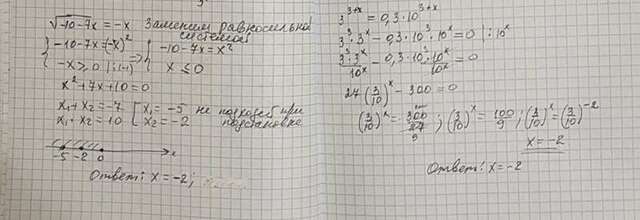 √-10-7x = -x Заменим равносильной
системой
{ -10-7x = (-x)² -10-7x = x²
{ -x ≥ 0 | :(-1) => { x ≤ 0
x² + 7x + 10 = 0
x₁ + x₂ = -7 [ x₁ = -5 не подходит при
x₁ + x₂ = 10 [ x₂ = -2 подстановке
-5 -2 0 x
Ответ: x = -2;
3^(3+x) = 0,3·10^(3+x)
3³·3^x - 0,3·10³·10^x = 0 | :10^x
3³·3^x/10^x - 0,3·10³·10^x/10^x = 0
27(3/10)^x - 300 = 0
(3/10)^x = 300/27 9; (3/10)^x = 100/9; (3/10)^x = (3/10)^-2
x = -2
Ответ: x = -2